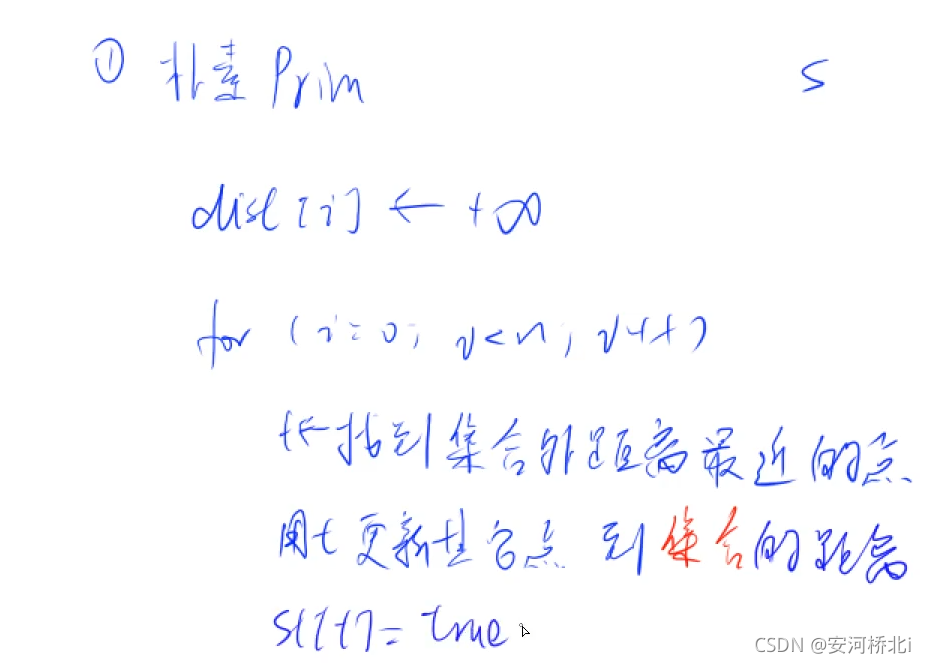 ① 朴素Prim S
dist[i] ← +∞
for (i=0; i<n; i++)
t←找到集合外距离最近的点
用t更新其它点 到集合的距离
st[t]= true
CSDN @安河桥北i